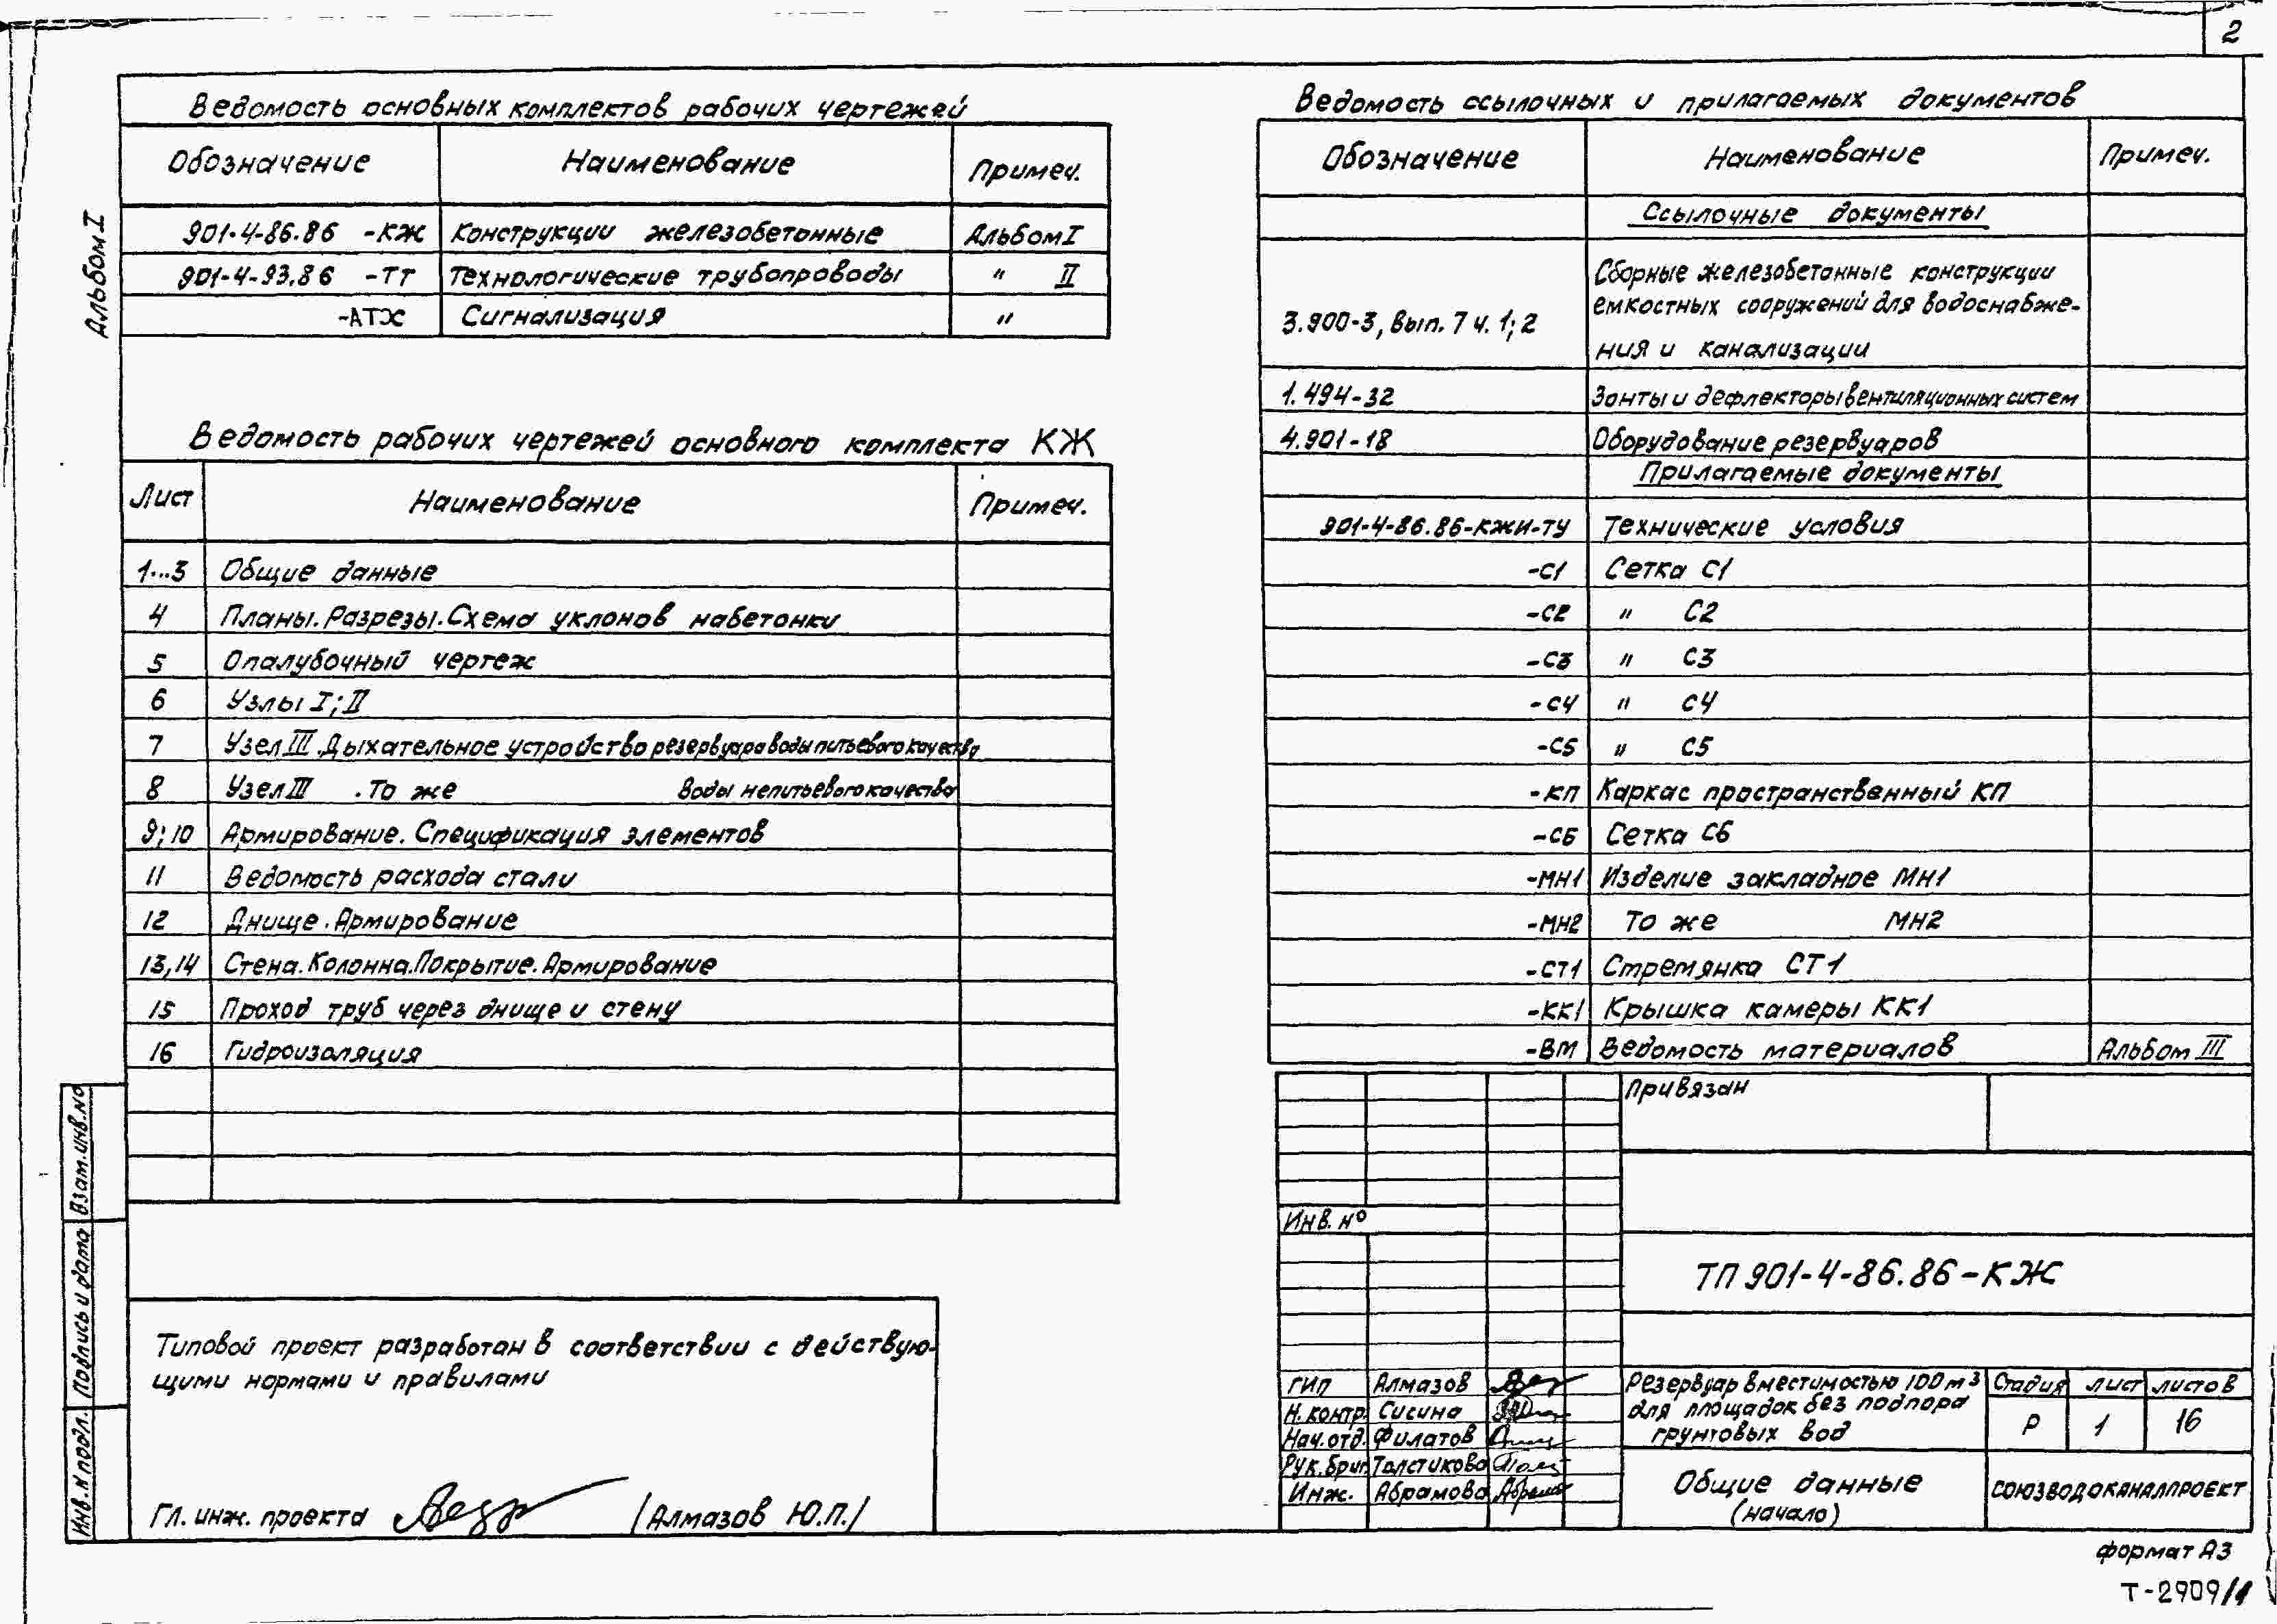 2
Альбом I
Ведомость основных комплектов рабочих чертежей
Обозначение Наименование Примеч.
901-4-86.86 -КЖ Конструкции железобетонные Альбом I
901-4-93.86 -ТТ Технологические трубопроводы " II
-АТХ Сигнализация "
Ведомость рабочих чертежей основного комплекта КЖ
Лист Наименование Примеч.
1...3 Общие данные
4 Планы. Разрезы. Схема уклонов набетонки
5 Опалубочный чертеж
6 Узлы I; II
7 Узел III. Дыхательное устройство резервуара воды питьевого качества
8 Узел III . То же воды непитьевого качества
9; 10 Армирование. Спецификация элементов
11 Ведомость расхода стали
12 Днище. Армирование
13,14 Стена. Колонна. Покрытие. Армирование
15 Проход труб через днище и стену
16 Гидроизоляция
Типовой проект разработан в соответствии с действую-
щими нормами и правилами
Гл. инж. проекта /Алмазов Ю.П./
Взам. инв. №
Подпись и дата
Инв. № подл.
Ведомость ссылочных и прилагаемых документов
Обозначение Наименование Примеч.
Ссылочные документы
3.900-3, вып. 7 ч. 1; 2 Сборные железобетонные конструкции
емкостных сооружений для водоснабже-
ния и канализации
1.494-32 Зонты и дефлекторы вентиляционных систем
4.901-18 Оборудование резервуаров
Прилагаемые документы
901-4-86.86-КЖИ-ТУ Технические условия
-С1 Сетка С1
-С2 " С2
-С3 " С3
-С4 " С4
-С5 " С5
-КП Каркас пространственный КП
-С6 Сетка С6
-МН1 Изделие закладное МН1
-МН2 То же МН2
-СТ1 Стремянка СТ1
-КК1 Крышка камеры КК1
-ВМ Ведомость материалов Альбом III
Привязан
Инв. №
ТП 901-4-86.86-КЖ
ГИП Алмазов
Н. контр. Сисина
Нач. отд. Филатов
Рук. бриг. Толстикова
Инж. Абрамова
Резервуар вместимостью 100 м³
для площадок без подпора
грунтовых вод
Стадия лист листов
Р 1 16
Общие данные
(начало)
СОЮЗВОДОКАНАЛПРОЕКТ
формат А3
Т-2909/1